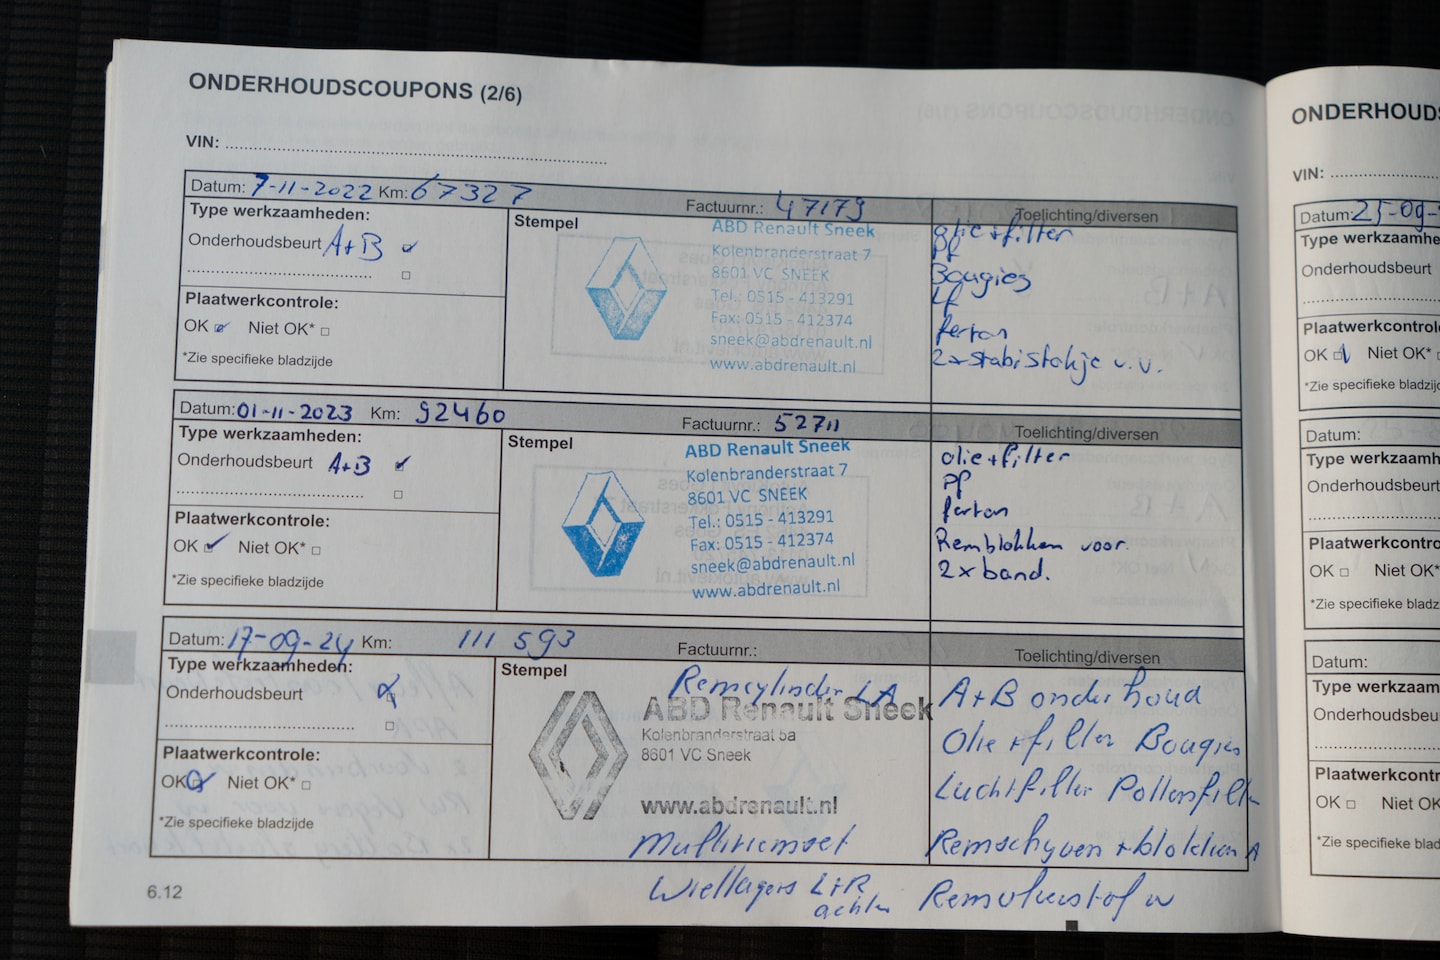 ONDERHOUDSCOUPONS (2/6)
VIN:
Datum: 7-11-2022 Km: 67327 Factuurnr.: 47179 Toelichting/diversen
Type werkzaamheden:
Onderhoudsbeurt A+B
Plaatwerkcontrole:
OK Niet OK*
*Zie specifieke bladzijde
Stempel
ABD Renault Sneek
Kolenbranderstraat 7
8601 VC SNEEK
Tel.: 0515 - 413291
Fax: 0515 - 412374
sneek@abdrenault.nl
www.abdrenault.nl
olie+filter
Pf
Bougies
Lf
ferton
2x stabistakje v.v.
Datum: 01-11-2023 Km: 92460 Factuurnr.: 52711 Toelichting/diversen
Type werkzaamheden:
Onderhoudsbeurt A+B
Plaatwerkcontrole:
OK Niet OK*
*Zie specifieke bladzijde
Stempel
ABD Renault Sneek
Kolenbranderstraat 7
8601 VC SNEEK
Tel.: 0515 - 413291
Fax: 0515 - 412374
sneek@abdrenault.nl
www.abdrenault.nl
olie+filter
Pf
ferton
Remblokken voor.
2x band.
Datum: 17-09-24 Km: 111 593 Factuurnr.: Toelichting/diversen
Type werkzaamheden:
Onderhoudsbeurt
Plaatwerkcontrole:
OK Niet OK*
*Zie specifieke bladzijde
Stempel
Remcylinder LA
ABD Renault Sneek
Kolenbranderstraat 5a
8601 VC Sneek
www.abdrenault.nl
Multiriemset
Wiellagers L+R
achter
A+B onderhoud
Olie+filter Bougies
Luchtfilter Pollenfilter
Remschijven+blokken A
Remvloeistof
6.12
ONDERHOUDS
VIN:
Datum: 25-09-
Type werkzaamhe
Onderhoudsbeurt
Plaatwerkcontrole
OK Niet OK*
*Zie specifieke bladzij
Datum:
Type werkzaamh
Onderhoudsbeurt
Plaatwerkcontro
OK Niet OK*
*Zie specifieke bladz
Datum:
Type werkzaam
Onderhoudsbeu
Plaatwerkcontr
OK Niet OK
*Zie specifieke blad